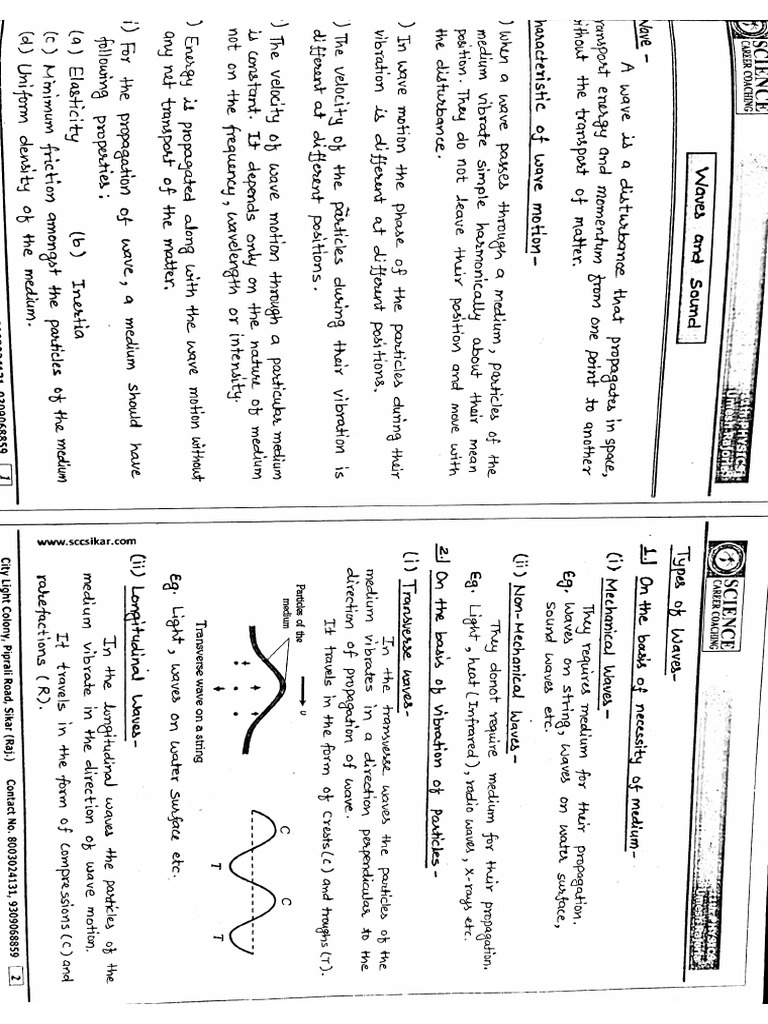 SCIENCE
CAREER COACHING
Waves and Sound
Wave -
A wave is a disturbance that propagates in space,
transport energy and momentum from one point to another
without the transport of matter.
haracteristic of wave motion -
) When a wave passes through a medium, particles of the
medium vibrate simple harmonically about their mean
position. They do not leave their position and move with
the disturbance.
) In wave motion the phase of the particles during their
vibration is different at different positions.
) The velocity of the particles during their vibration is
different at different positions.
) The velocity of wave motion through a particular medium
is constant. It depends only on the nature of medium
not on the frequency, wavelength or intensity.
) Energy is propagated along with the wave motion without
any net transport of the matter.
i) For the propagation of wave, a medium should have
following properties:
(a) Elasticity (b) Inertia
(c) Minimum friction amongst the particles of the medium
(d) Uniform density of the medium.
9309068859 1
SCIENCE
CAREER COACHING
Types of Waves-
1.] On the basis of necessity of medium -
(i) Mechanical Waves-
They requires medium for their propagation.
Eg. Waves on string, waves on water surface,
sound waves etc.
(ii) Non-Mechanical Waves -
They donot require medium for their propagation.
Eg. Light, heat (Infrared), radio waves, x-rays etc.
2.] On the basis of vibration of Particles -
(i) Transverse waves-
In the transverse waves the particles of the
medium vibrates in a direction perpendicular to the
direction of propagation of wave.
It travels in the form of Crests(C) and troughs (T).
Particles of the
medium
υ
C C
T T
Transverse wave on a string
Eg. Light, waves on water surface etc.
(ii) Longitudinal Waves -
In the longitudinal waves the particles of the
medium vibrate in the direction of wave motion.
It travels in the form of compressions (C) and
rarefactions (R).
www.sccsikar.com
City Light Colony, Piprali Road, Sikar (Raj.) Contact No. 8003024131, 9309068859 2